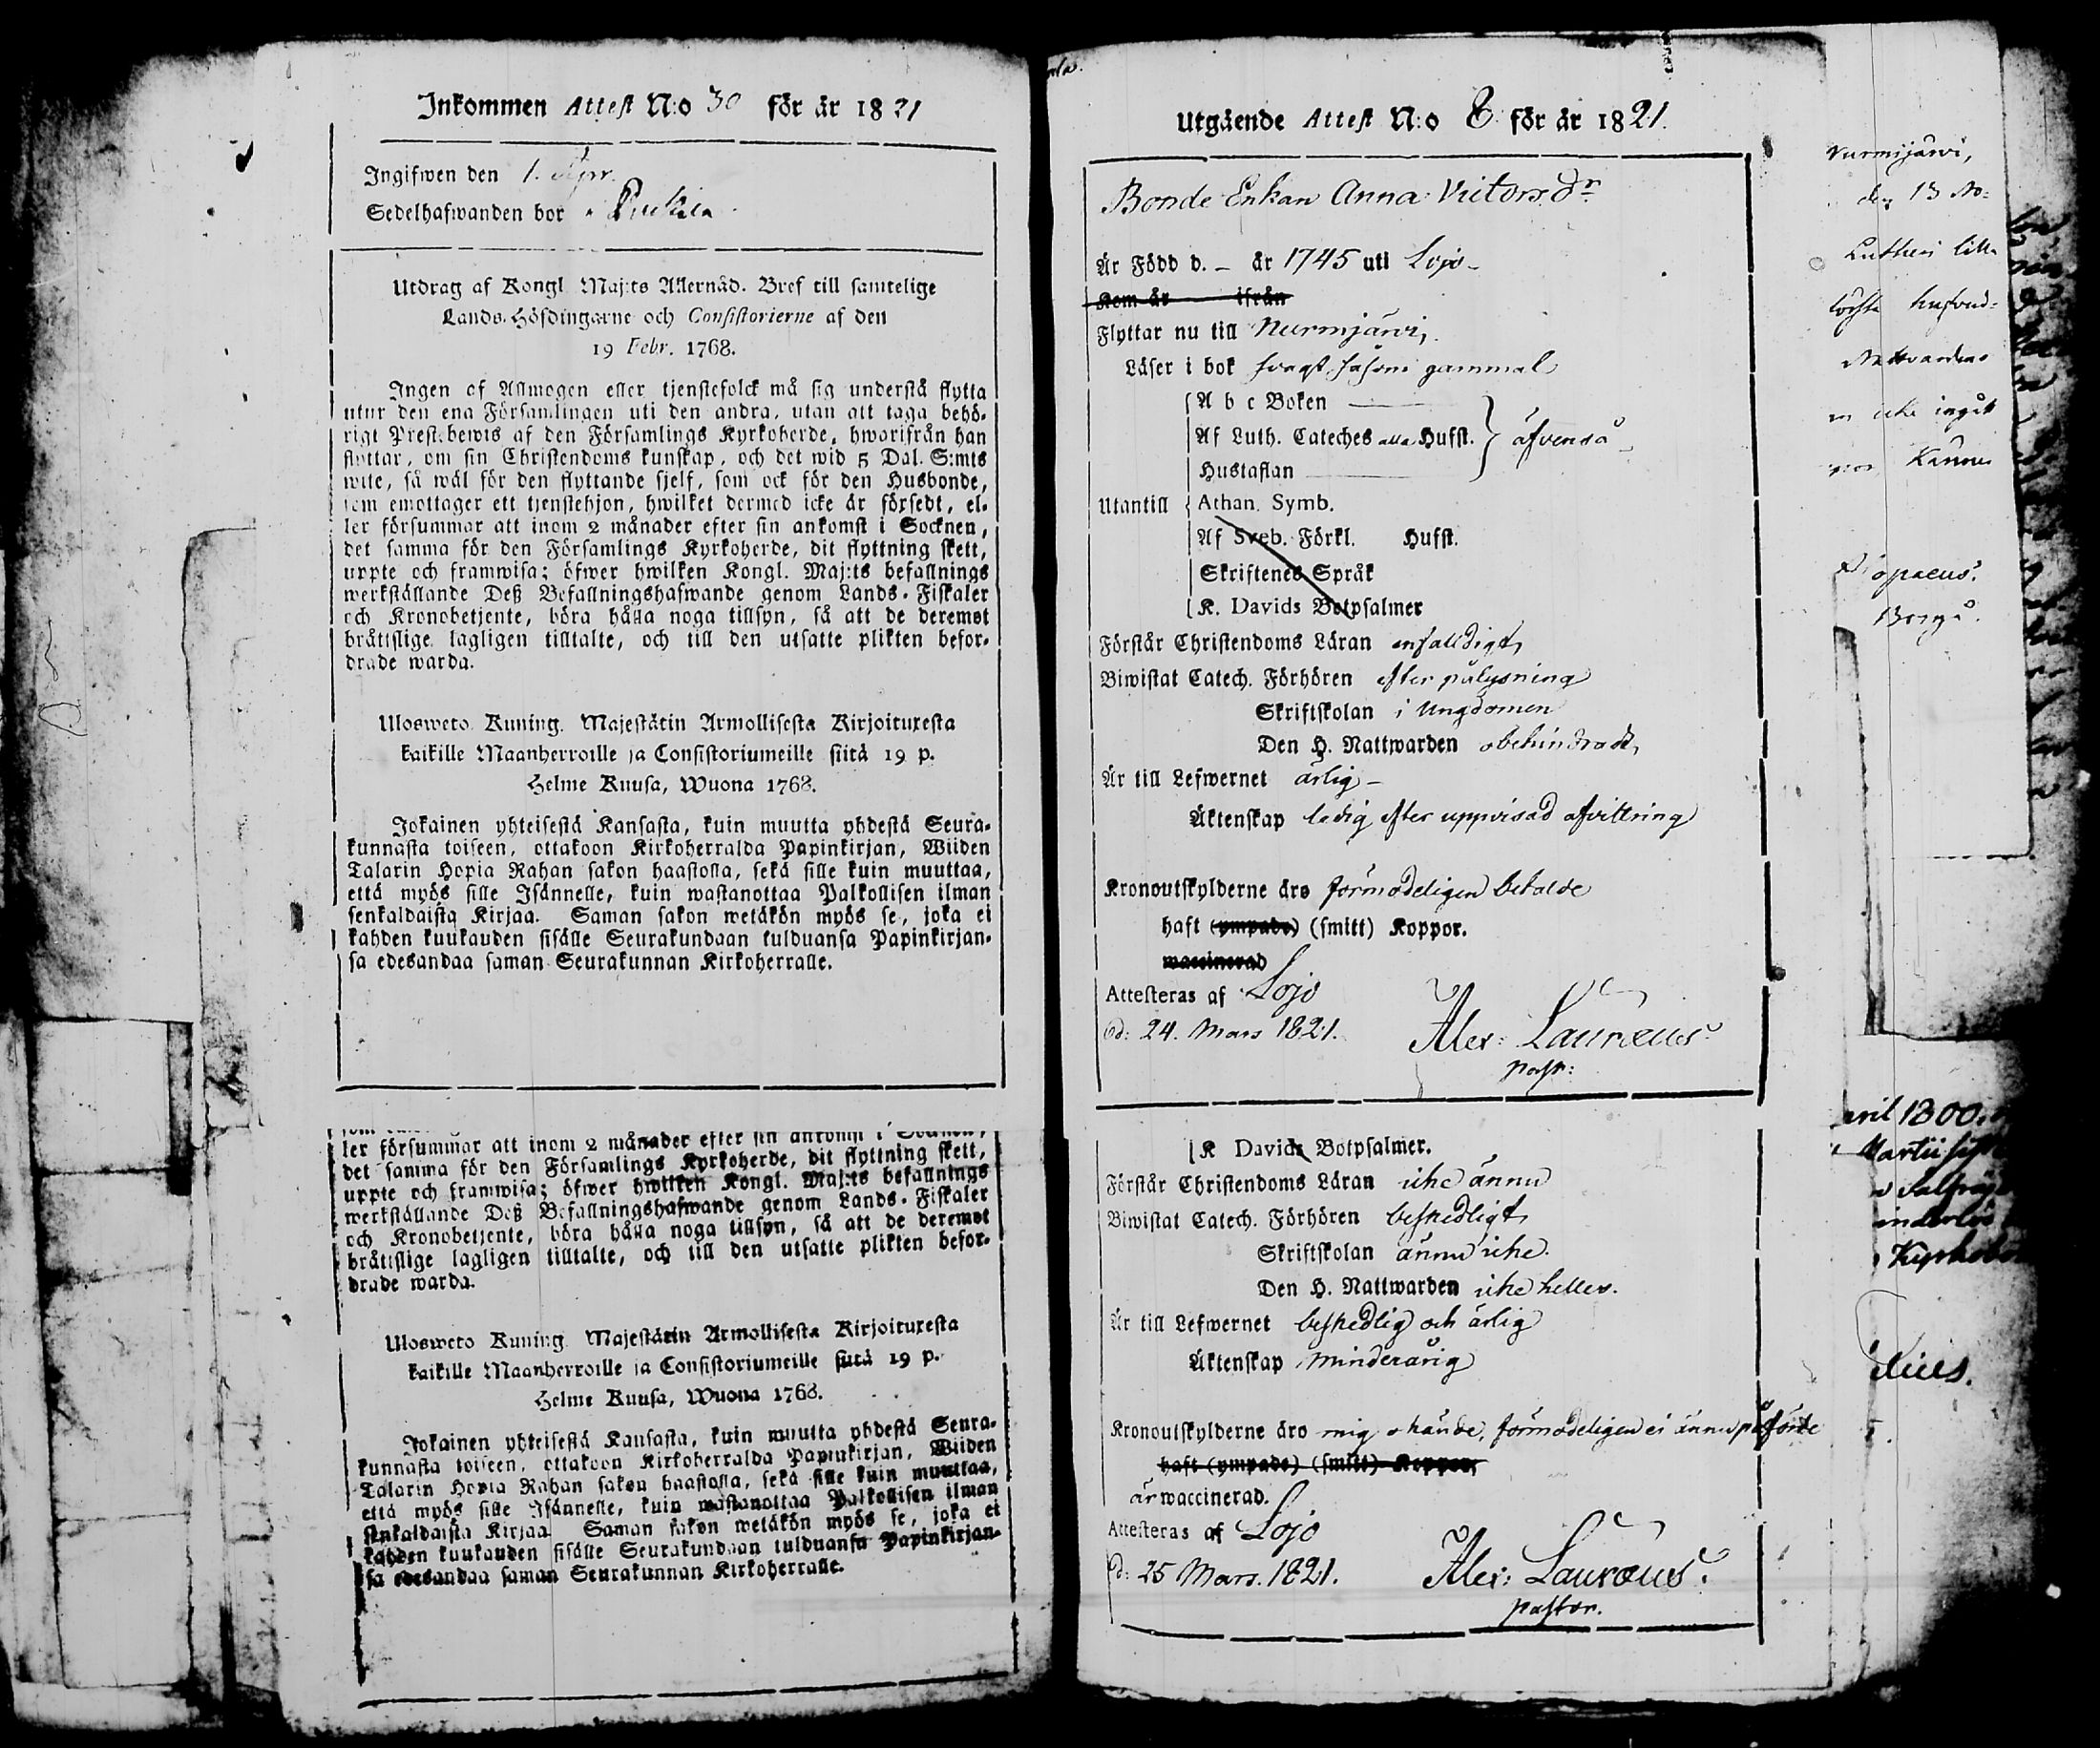 Inkommen Attest N:o 30 för år 1821
Ingifwen den 1. Apr.
Sedelhafwanden bor
Utdrag af Kongl. Maj:ts Allernåd. Bref till samtelige
Lands-Höfdingarne och Consistorierne af den
19 Febr. 1768.
Ingen af Allmogen eller tjenstefolck må sig understå flytta
utur den ena Församlingen uti den andra, utan att taga behö-
rigt Prestebewis af den Församlings Kyrkoherde, hwarifrån han
flyttar, om sin Christendoms kunskap, och det wid 5 Dal. S:mts
wite, så wäl för den flyttande sjelf, som ock för den Husbonde,
som emottager ett tjenstehjon, hwilket dermed icke är försedt, el-
ler försummar att inom 2 månader efter sin ankomst i Socknen,
det samma för den Församlings Kyrkoherde, dit flyttning skett,
uppte och framwisa; öfwer hwilken Kongl. Maj:ts befallnings
werkställande Deß Befallningshafwande genom Lands-Fiskaler
och Kronobetjente, böra hålla noga tillsyn, så att de deremot
bråttslige lagligen tilltalte, och till den utsatte plikten befor-
drade warda.
Ulosweto Kuning. Majestätin Armollisesta Kirjoituxesta
kaikille Maanherroille ja Consistoriumeille siitä 19 p.
Helme Kuusa, Wuona 1768.
Jokainen yhteisestä Kansasta, kuin muutta yhdestä Seura-
kunnasta toiseen, ottakoon Kirkoherralda Papinkirjan, Wiiden
Talarin Hopia Rahan sakon haastolla, sekä sille kuin muuttaa,
että myös sille Isännelle, kuin wastanottaa Palkollisen ilman
senkaldaista Kirjaa. Saman sakon wetäkön myös se, joka ei
kahden kuukauden sisälle Seurakundaan tulduansa Papinkirjan-
sa edesandaa saman Seurakunnan Kirkoherralle.
ler försummar att inom 2 månader efter sin ankomst i Socknen,
det samma för den Församlings Kyrkoherde, dit flyttning skett,
uppte och framwisa; öfwer hwilken Kongl. Maj:ts befallnings
werkställande Deß Befallningshafwande genom Lands-Fiskaler
och Kronobetjente, böra hålla noga tillsyn, så att de deremot
bråttslige lagligen tilltalte, och till den utsatte plikten befor-
drade warda.
Ulosweto Kuning. Majestätin Armollisesta Kirjoituxesta
kaikille Maanherroille ja Consistoriumeille siitä 19 p.
Helme Kuusa, Wuona 1768.
Jokainen yhteisestä Kansasta, kuin muutta yhdestä Seura-
kunnasta toiseen, ottakoon Kirkoherralda Papinkirjan, Wiiden
Talarin Hopia Rahan sakon haastolla, sekä sille kuin muuttaa,
että myös sille Isännelle, kuin wastanottaa Palkollisen ilman
senkaldaista Kirjaa. Saman sakon wetäkön myös se, joka ei
kahden kuukauden sisälle Seurakundaan tulduansa Papinkirjan-
sa edesandaa saman Seurakunnan Kirkoherralle.
Utgående Attest N:o 8 för år 1821.
Bonde Enkan Anna Victors dr
Är Född d. - år 1745 uti Lojo -
Kom år ifrån
Flyttar nu till Nurmjärvi,
Läser i bok svagt såsom gammal
A b c Boken
Af Luth. Cateches alla Hufst. äfvenså
Hustaflan
Utantill Athan. Symb.
Af Sveb. Förkl. Hufst.
Skriftenes Språk
K. Davids Botpsalmer
Förstår Christendoms Läran enfaldigt,
Biwistat Catech. Förhören efter pålysning
Skriftskolan i Ungdomen
Den H. Nattwarden obehindradt,
Är till Lefwernet ärlig -
Äktenskap ledig efter uppvisad afvittring
Kronoutskylderne äro förmodeligen betalde
haft (ympade) (smitt) Koppor.
waccinerad
Attesteras af Lojo
d: 24. Mars 1821. Alex: Lauræus
past:
K Davids Botpsalmer.
Förstår Christendoms Läran icke ännu
Biwistat Catech. Förhören beskedligt,
Skriftskolan ännu icke.
Den H. Nattwarden icke heller.
Är till Lefwernet beskedlig och ärlig
Äktenskap minderårig
Kronoutskylderne äro mig okände, förmodeligen ei ännu påförde
haft (ympade) (smitt) Koppor,
är waccinerad.
Attesteras af Lojo
d: 25 Mars. 1821. Alex: Lauræus.
pastor.
Nurmijärvi,
den 13 No-
Lutheri lilla
Nattvarden
icke ingått
Borgå.
april 1800.
Martii